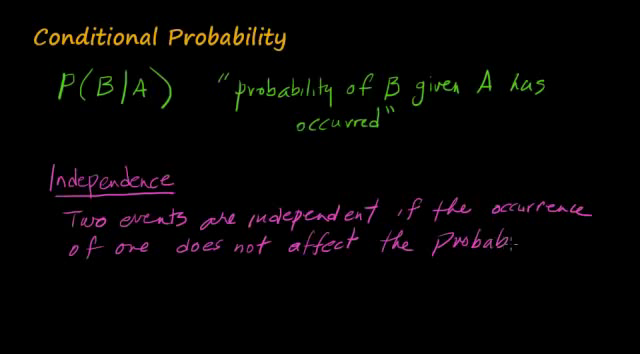 Conditional Probability
P(B/A) "probability of B given A has
occurred"
Independence
Two events are independent if the occurrence
of one does not affect the probabi